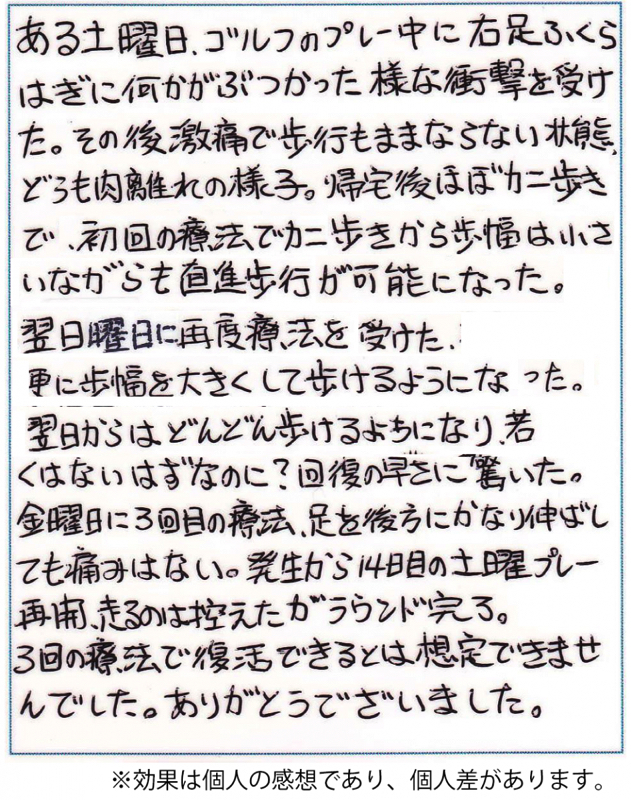 ある土曜日、ゴルフのプレー中に右足ふくら
はぎに何かがぶつかった様な衝撃を受け
た。その後激痛で歩行もままならない状態、
どうも肉離れの様子。帰宅後ほぼカニ歩き
で、初回の療法でカニ歩きから歩幅は小さ
いながらも直進歩行が可能になった。
翌日曜日に再度療法を受けた、
更に歩幅を大きくして歩けるようになった。
翌日からはどんどん歩けるようになり、若
くはないはずなのに?回復の早さに驚いた。
金曜日に3回目の療法、足を後方にかなり伸ばし
ても痛みはない。発生から14日目の土曜プレー
再開、走るのは控えたがラウンド完了。
3回の療法で復活できるとは想定できませ
んでした。ありがとうございました。
※効果は個人の感想であり、個人差があります。